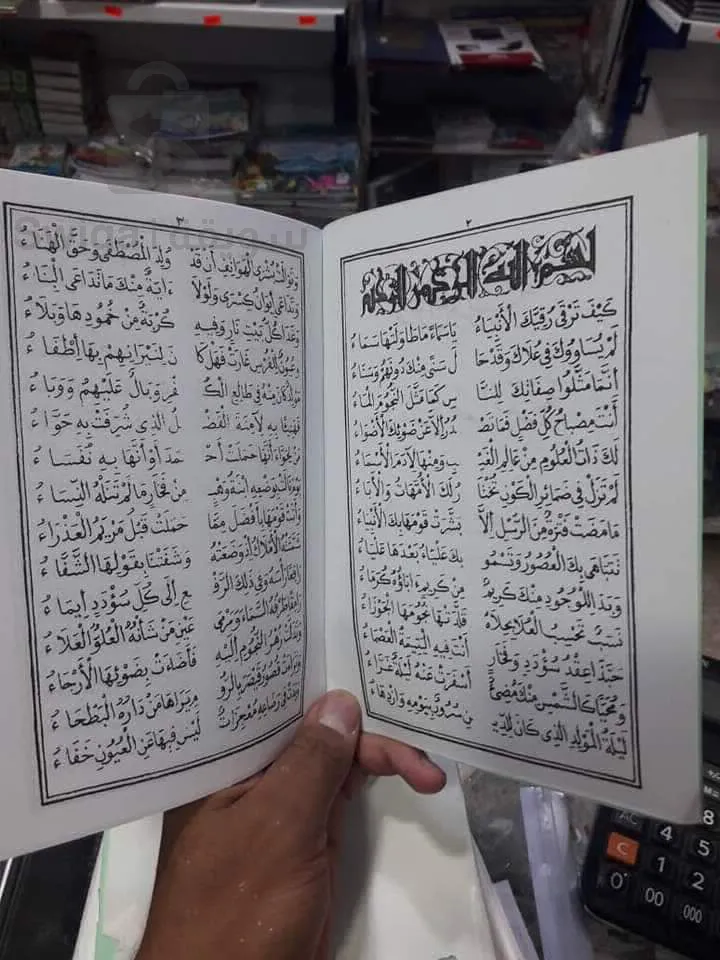 ٢
بسم الله الرحمن الرحيم
كَيْفَ تَرْقَى رُقِيَّكَ الْأَنْبِيَاءُ يَاسَمَاءً مَاطَاوَلَتْهَا سَمَاءُ
لَمْ يُسَاوُوكَ فِي عُلَاكَ وَقَدْ حَا لَ سَنًى مِنْكَ دُونَهُمْ وَسَنَاءُ
أَنَّمَا مَثَّلُوا صِفَاتِكَ لِلنَّا سِ كَمَا مَثَّلَ النُّجُومَ الْمَاءُ
أَنْتَ مِصْبَاحُ كُلِّ فَضْلٍ فَمَا تَصْ دُرُ إِلَّا عَنْ ضَوْئِكَ الْأَضْوَاءُ
لَكَ ذَاتُ الْعُلُومِ مِنْ عَالِمِ الْغَيْ بِ وَمِنْهَا لِآدَمَ الْأَسْمَاءُ
لَمْ تَزَلْ فِي ضَمَائِرِ الْكَوْنِ تُخْتَا رُ لَكَ الْأُمَّهَاتُ وَالْآبَاءُ
مَا مَضَتْ فَتْرَةٌ مِنَ الرُّسْلِ إِلَّا بَشَّرَتْ قَوْمَهَا بِكَ الْأَنْبِيَاءُ
تَتَبَاهَى بِكَ الْعُصُورُ وَتَسْمُو بِكَ عَلْيَاءُ بَعْدَهَا عَلْيَاءُ
وَبَدَا لِلْوُجُودِ مِنْكَ كَرِيمٌ مِنْ كَرِيمٍ ءَابَاؤُهُ كُرَمَاءُ
نَسَبٌ تَحْسِبُ الْعُلَا بِحُلَاهُ قَلَّدَتْهَا نُجُومَهَا الْجَوْزَاءُ
حَبَّذَا عِقْدُ سُؤْدَدٍ وَفَخَارٍ أَنْتَ فِيهِ الْيَتِيمَةُ الْعَصْمَاءُ
وَمُحَيًّا كَالشَّمْسِ مِنْكَ مُضِئٌ أَسْفَرَتْ عَنْهُ لَيْلَةٌ غَرَّاءُ
لَيْلَةُ الْمَوْلِدِ الَّذِي كَانَ لِلدِّيـ نِ سُرُورٌ بِيَوْمِهِ وَازْدِهَاءُ
٣
وَتَوَالَتْ بُشْرَى الْهَوَاتِفِ أَنْ قَدْ وُلِدَ الْمُصْطَفَى وَحُقَّ الْهَنَاءُ
وَتَدَاعَى إِيوَانُ كِسْرَى وَلَوْلَا ءَايَةٌ مِنْكَ مَا تَدَاعَى الْبِنَاءُ
وَغَدَا كُلُّ بَيْتِ نَارٍ وَفِيهِ كُرْبَةٌ مِنْ خُمُودِهَا وَبَلَاءُ
وَعُيُونٌ لِلْفُرْسِ غَارَتْ فَهَلْ كَا نَ لِنِيرَانِهِمْ بِهَا إِطْفَاءُ
مَوْلِدٌ كَانَ مِنْهُ فِي طَالِعِ الْكُ فْرِ وَبَالٌ عَلَيْهِمُ وَوَبَاءُ
فَهَنِيئًا بِهِ لِآمِنَةَ الْفَضْ لُ الَّذِي شُرِّفَتْ بِهِ حَوَّاءُ
مَنْ لِحَوَّاءَ أَنَّهَا حَمَلَتْ أَحْ مَدَ أَوْ أَنَّهَا بِهِ نُفَسَاءُ
يَوْمَ نَالَتْ بِوَضْعِهِ ابْنَةُ وَهْبٍ مِنْ فَخَارٍ مَا لَمْ تَنَلْهُ النِّسَاءُ
وَأَتَتْ قَوْمَهَا بِأَفْضَلَ مِمَّا حَمَلَتْ قَبْلُ مَرْيَمُ الْعَذْرَاءُ
شَمَّتَتْهُ الْأَمْلَاكُ إِذْ وَضَعَتْهُ وَشَفَتْنَا بِقَوْلِهَا الشَّفَّاءُ
رَافِعًا رَأْسَهُ وَفِي ذَلِكَ الرَّفْ عِ إِلَى كُلِّ سُؤْدَدٍ إِيمَاءُ
رَامِقًا طَرْفُهُ السَّمَاءَ وَمَرْمَى عَيْنِ مَنْ شَأْنُهُ الْعُلُوُّ الْعَلَاءُ
وَتَدَلَّتْ زُهْرُ النُّجُومِ إِلَيْهِ فَأَضَاءَتْ بِضَوْئِهَا الْأَرْجَاءُ
وَتَرَاءَتْ قُصُورُ قَيْصَرَ بِالرُّو مِ يَرَاهَا مَنْ دَارُهُ الْبَطْحَاءُ
وَبَدَتْ فِي رَضَاعِهِ مُعْجِزَاتٌ لَيْسَ فِيهَا عَنِ الْعُيُونِ خَفَاءُ
سويقة
AC
4
5
8
C
1
2
0
00
000